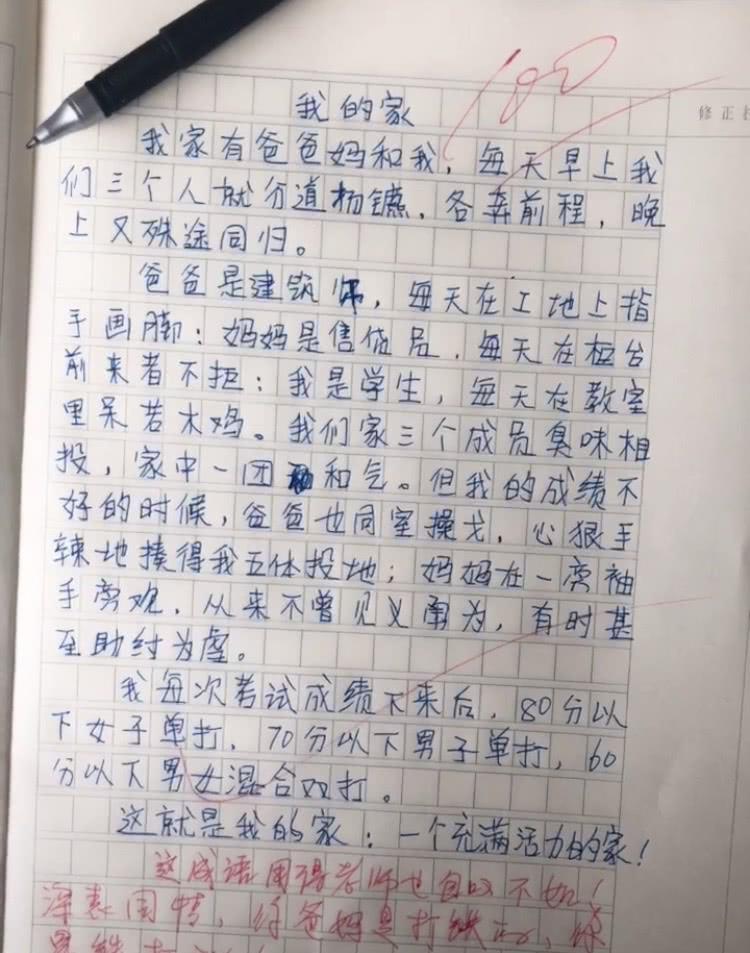 100
修正
我的家
我家有爸爸妈和我，每天早上我
们三个人就分道杨镳，各奔前程，晚
上又殊途同归。
爸爸是建筑师，每天在工地上指
手画脚；妈妈是售货员，每天在柜台
前来者不拒；我是学生，每天在教室
里呆若木鸡。我们家三个成员臭味相
投，家中一团和气。但我的成绩不
好的时候，爸爸也同室操戈，心狠手
辣地揍得我五体投地；妈妈在一旁袖
手旁观，从来不曾见义勇为，有时甚
至助纣为虐。
我每次考试成绩下来后，80分以
下女子单打，70分以下男子单打，60
分以下男女混合双打。
这就是我的家：一个充满活力的家！
这成语用得老师也自叹不如！
深表同情，你爸妈是打铁的，你